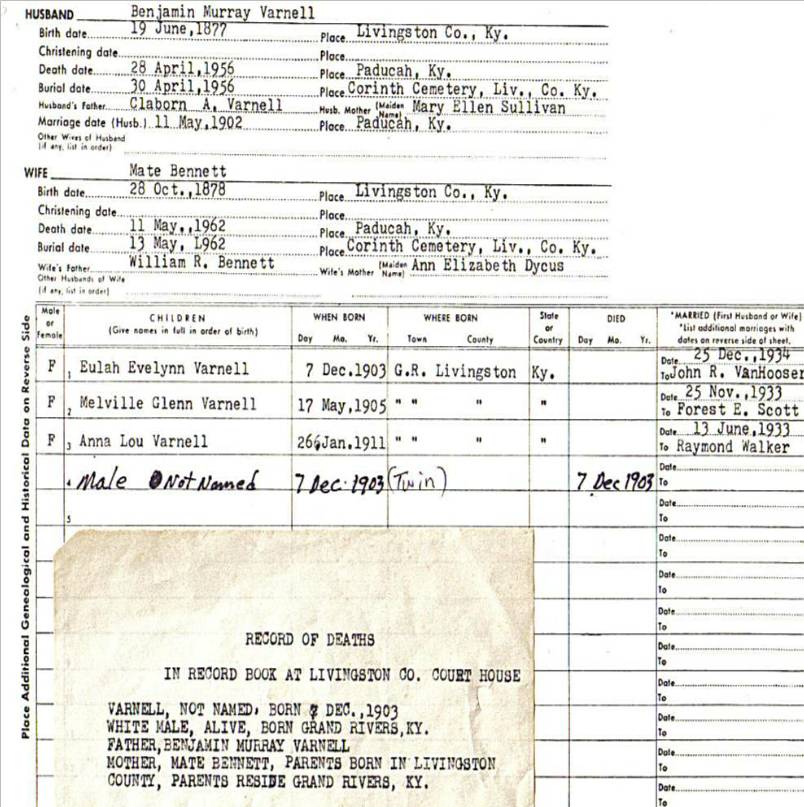 HUSBAND Benjamin Murray Varnell
Birth date 19 June,1877 Place Livingston Co., Ky.
Christening date Place
Death date 28 April,1956 Place Paducah, Ky.
Burial date 30 April,1956 Place Corinth Cemetery, Liv., Co. Ky.
Husband's Father Claborn A. Varnell Husb. Mother (Maiden Name) Mary Ellen Sullivan
Marriage date (Husb.) 11 May,1902 Place Paducah, Ky.
Other Wives of Husband
(if any, list in order)
WIFE Mate Bennett
Birth date 28 Oct.,1878 Place Livingston Co., Ky.
Christening date Place
Death date 11 May.,1962 Place Paducah, Ky.
Burial date 13 May, L962 Place Corinth Cemetery, Liv., Co. Ky.
Wife's Father William R. Bennett Wife's Mother (Maiden Name) Ann Elizabeth Dycus
Other Husbands of Wife
(if any, list in order)
Place Additional Genealogical and Historical Data on Reverse Side
Male or Female CHILDREN (Give names in full in order of birth) WHEN BORN Day Mo. Yr. WHERE BORN Town County State or Country DIED Day Mo. Yr. *MARRIED (First Husband or Wife) *List additional marriages with dates on reverse side of sheet.
F 1 Eulah Evelynn Varnell 7 Dec.1903 G.R. Livingston Ky. Date 25 Dec.,1934
To John R. VanHooser
F 2 Melville Glenn Varnell 17 May,1905 " " " " Date 25 Nov.,1933
To Forest E. Scott
F 3 Anna Lou Varnell 26 Jan.1911 " " " " Date 13 June,1933
To Raymond Walker
4 Male Not Named 7 Dec. 1903 (Twin) 7 Dec 1903 Date
To
5 Date
To
Date
To
Date
To
Date
To
Date
To
Date
To
Date
To
Date
To
Date
To
RECORD OF DEATHS
IN RECORD BOOK AT LIVINGSTON CO. COURT HOUSE
VARNELL, NOT NAMED, BORN 7 DEC.,1903
WHITE MALE, ALIVE, BORN GRAND RIVERS,KY.
FATHER,BENJAMIN MURRAY VARNELL
MOTHER, MATE BENNETT, PARENTS BORN IN LIVINGSTON
COUNTY, PARENTS RESIDE GRAND RIVERS, KY.